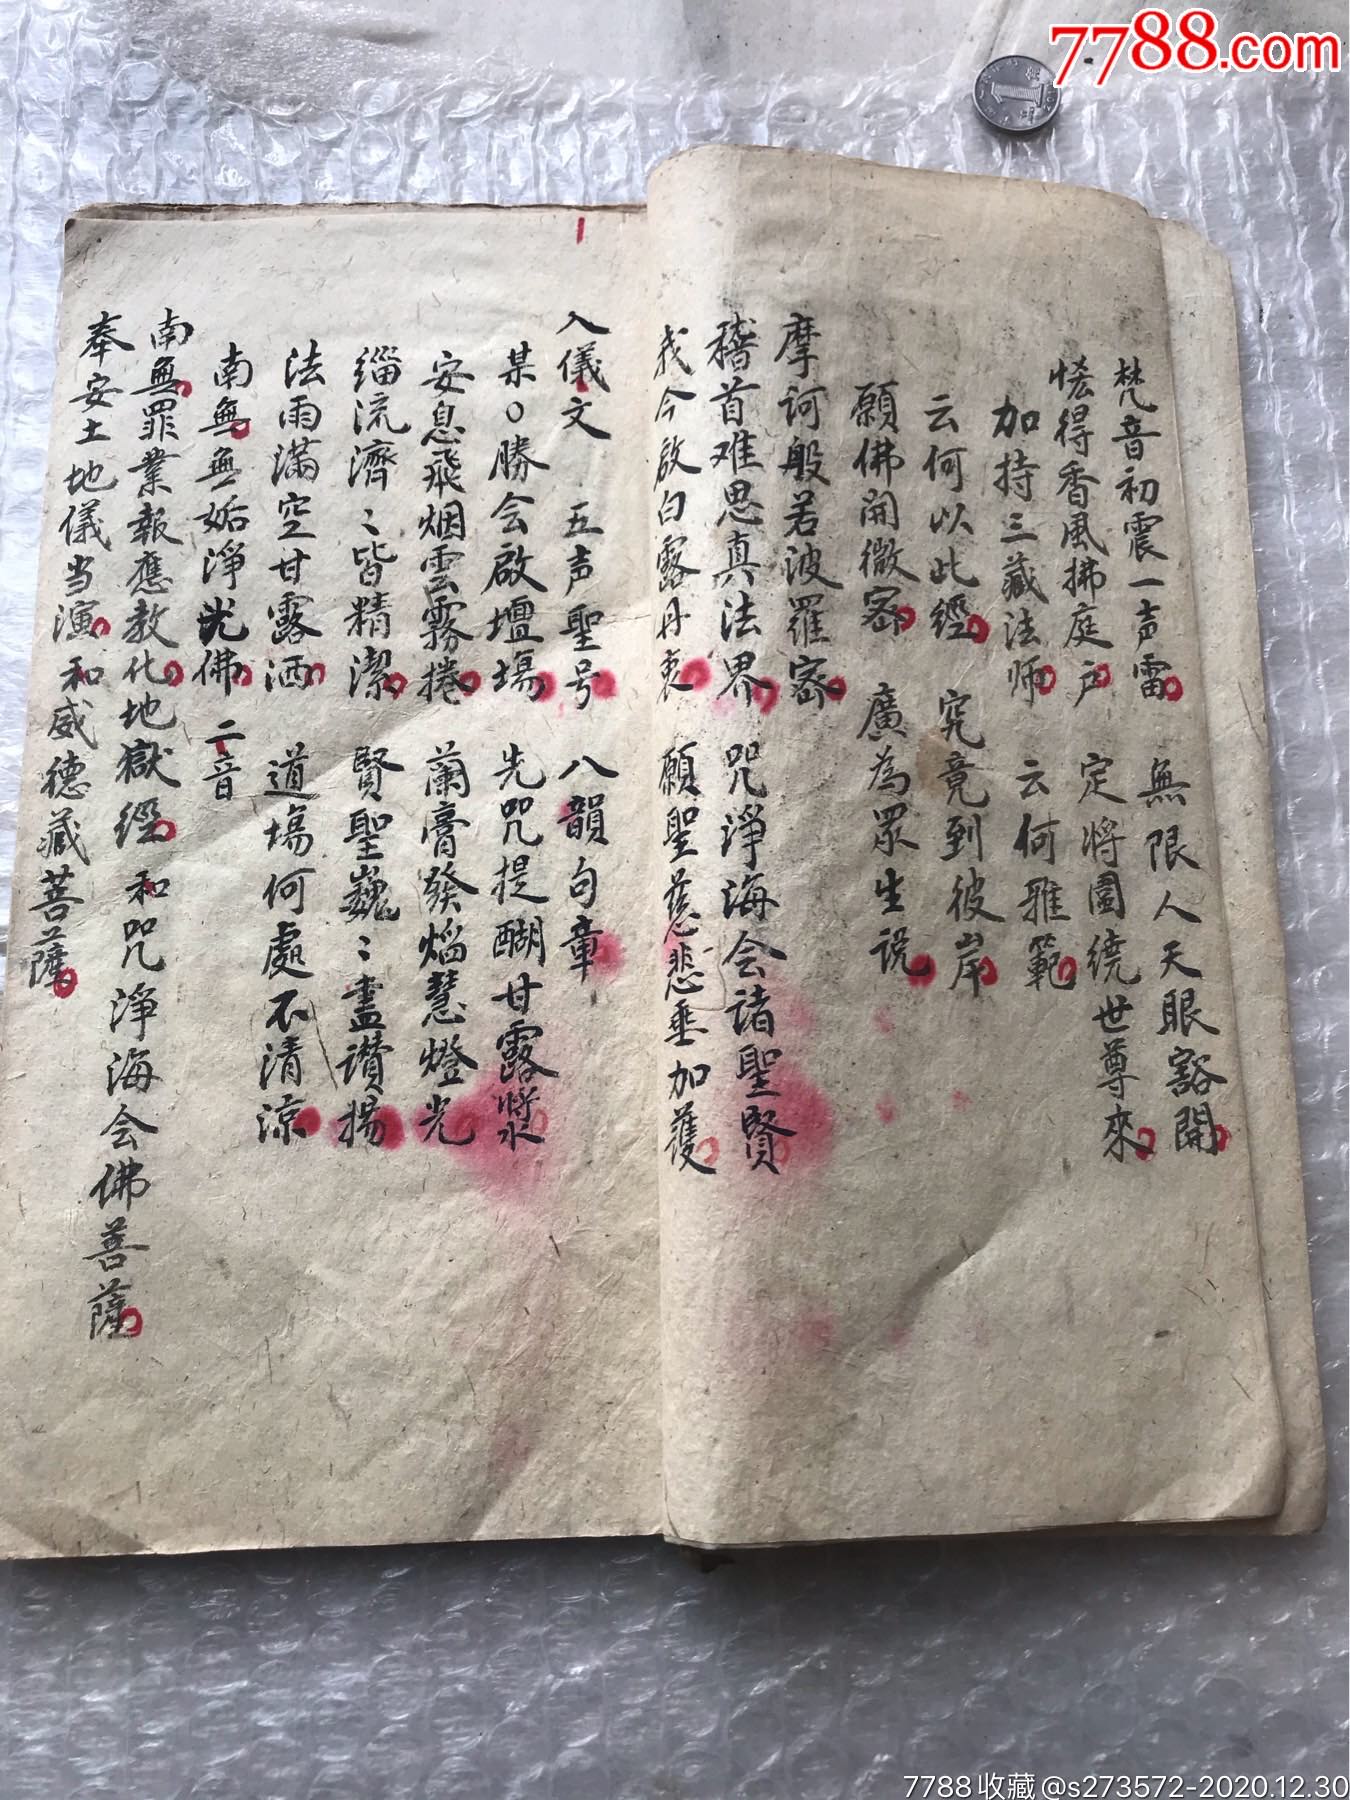 7788.com
梵音初震一声雷 無限人天眼豁開
惹得香風拂庭户 定將圍繞世尊來
加持三藏法师 云何雅範
云何以此經 究竟到彼岸
願佛開微密 廣為眾生说
摩诃般若波羅密
稽首难思真法界 咒淨海会诸聖賢
我今啟白露丹衷 願聖慈悲垂加護
入儀文 五声聖号 八韻句章
某○勝会啟壇場 先咒提醐甘露將水
安息飛烟雲霧捲 蘭膏發焰慧燈光
緇流濟〻皆精潔 賢聖巍〻盡讚揚
法雨滿空甘露洒 道場何處不清涼
南無無垢淨光佛 二音
南無罪業報應教化地獄經 和咒淨海会佛菩薩
奉安土地儀当演 和威德藏菩薩
7788收藏@s273572-2020.12.30